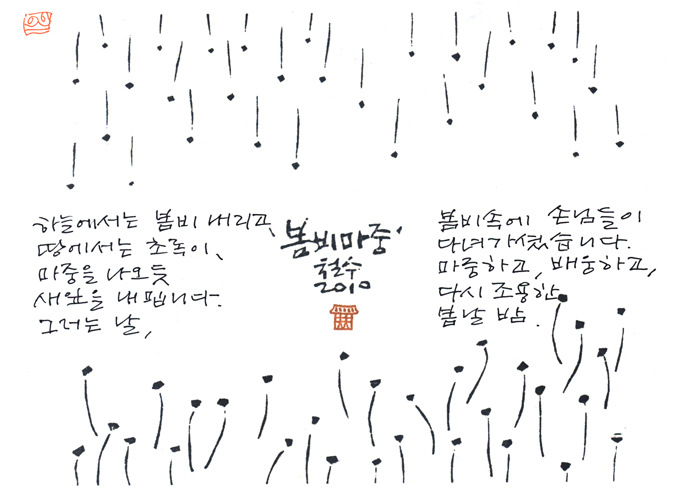 하늘에서는 봄비 내리고,
땅에서는 초록이,
마중을 나오듯
새싹을 내밉니다.
그러는 날,
'봄비마중'
철수
2010
봄비속에 손님들이
다녀가셨습니다.
마중하고, 배웅하고,
다시 조용한
봄날 밤.